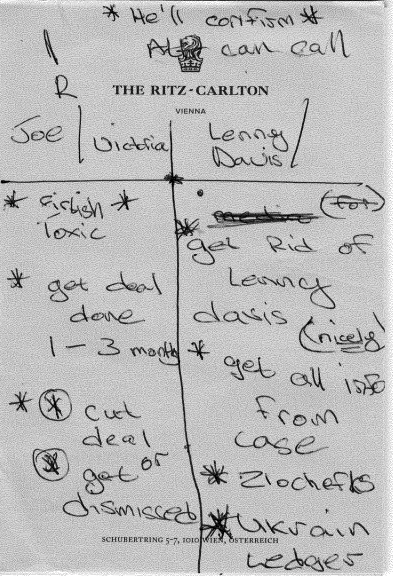 * He'll confirm *
\ At can call
R
THE RITZ-CARLTON
VIENNA
Joe / Victoria
Lenny
Davis /
* Firtish *
Toxic
* get deal
done
1 - 3 month
* * cut
deal
* or
get
dismissed
(for)
* get Rid of
Lenny
davis (nicely)
* get all info
from
case
* Zlochefks
* Ukrain
Ledger
SCHUBERTRING 5-7, 1010 WIEN, ÖSTERREICH